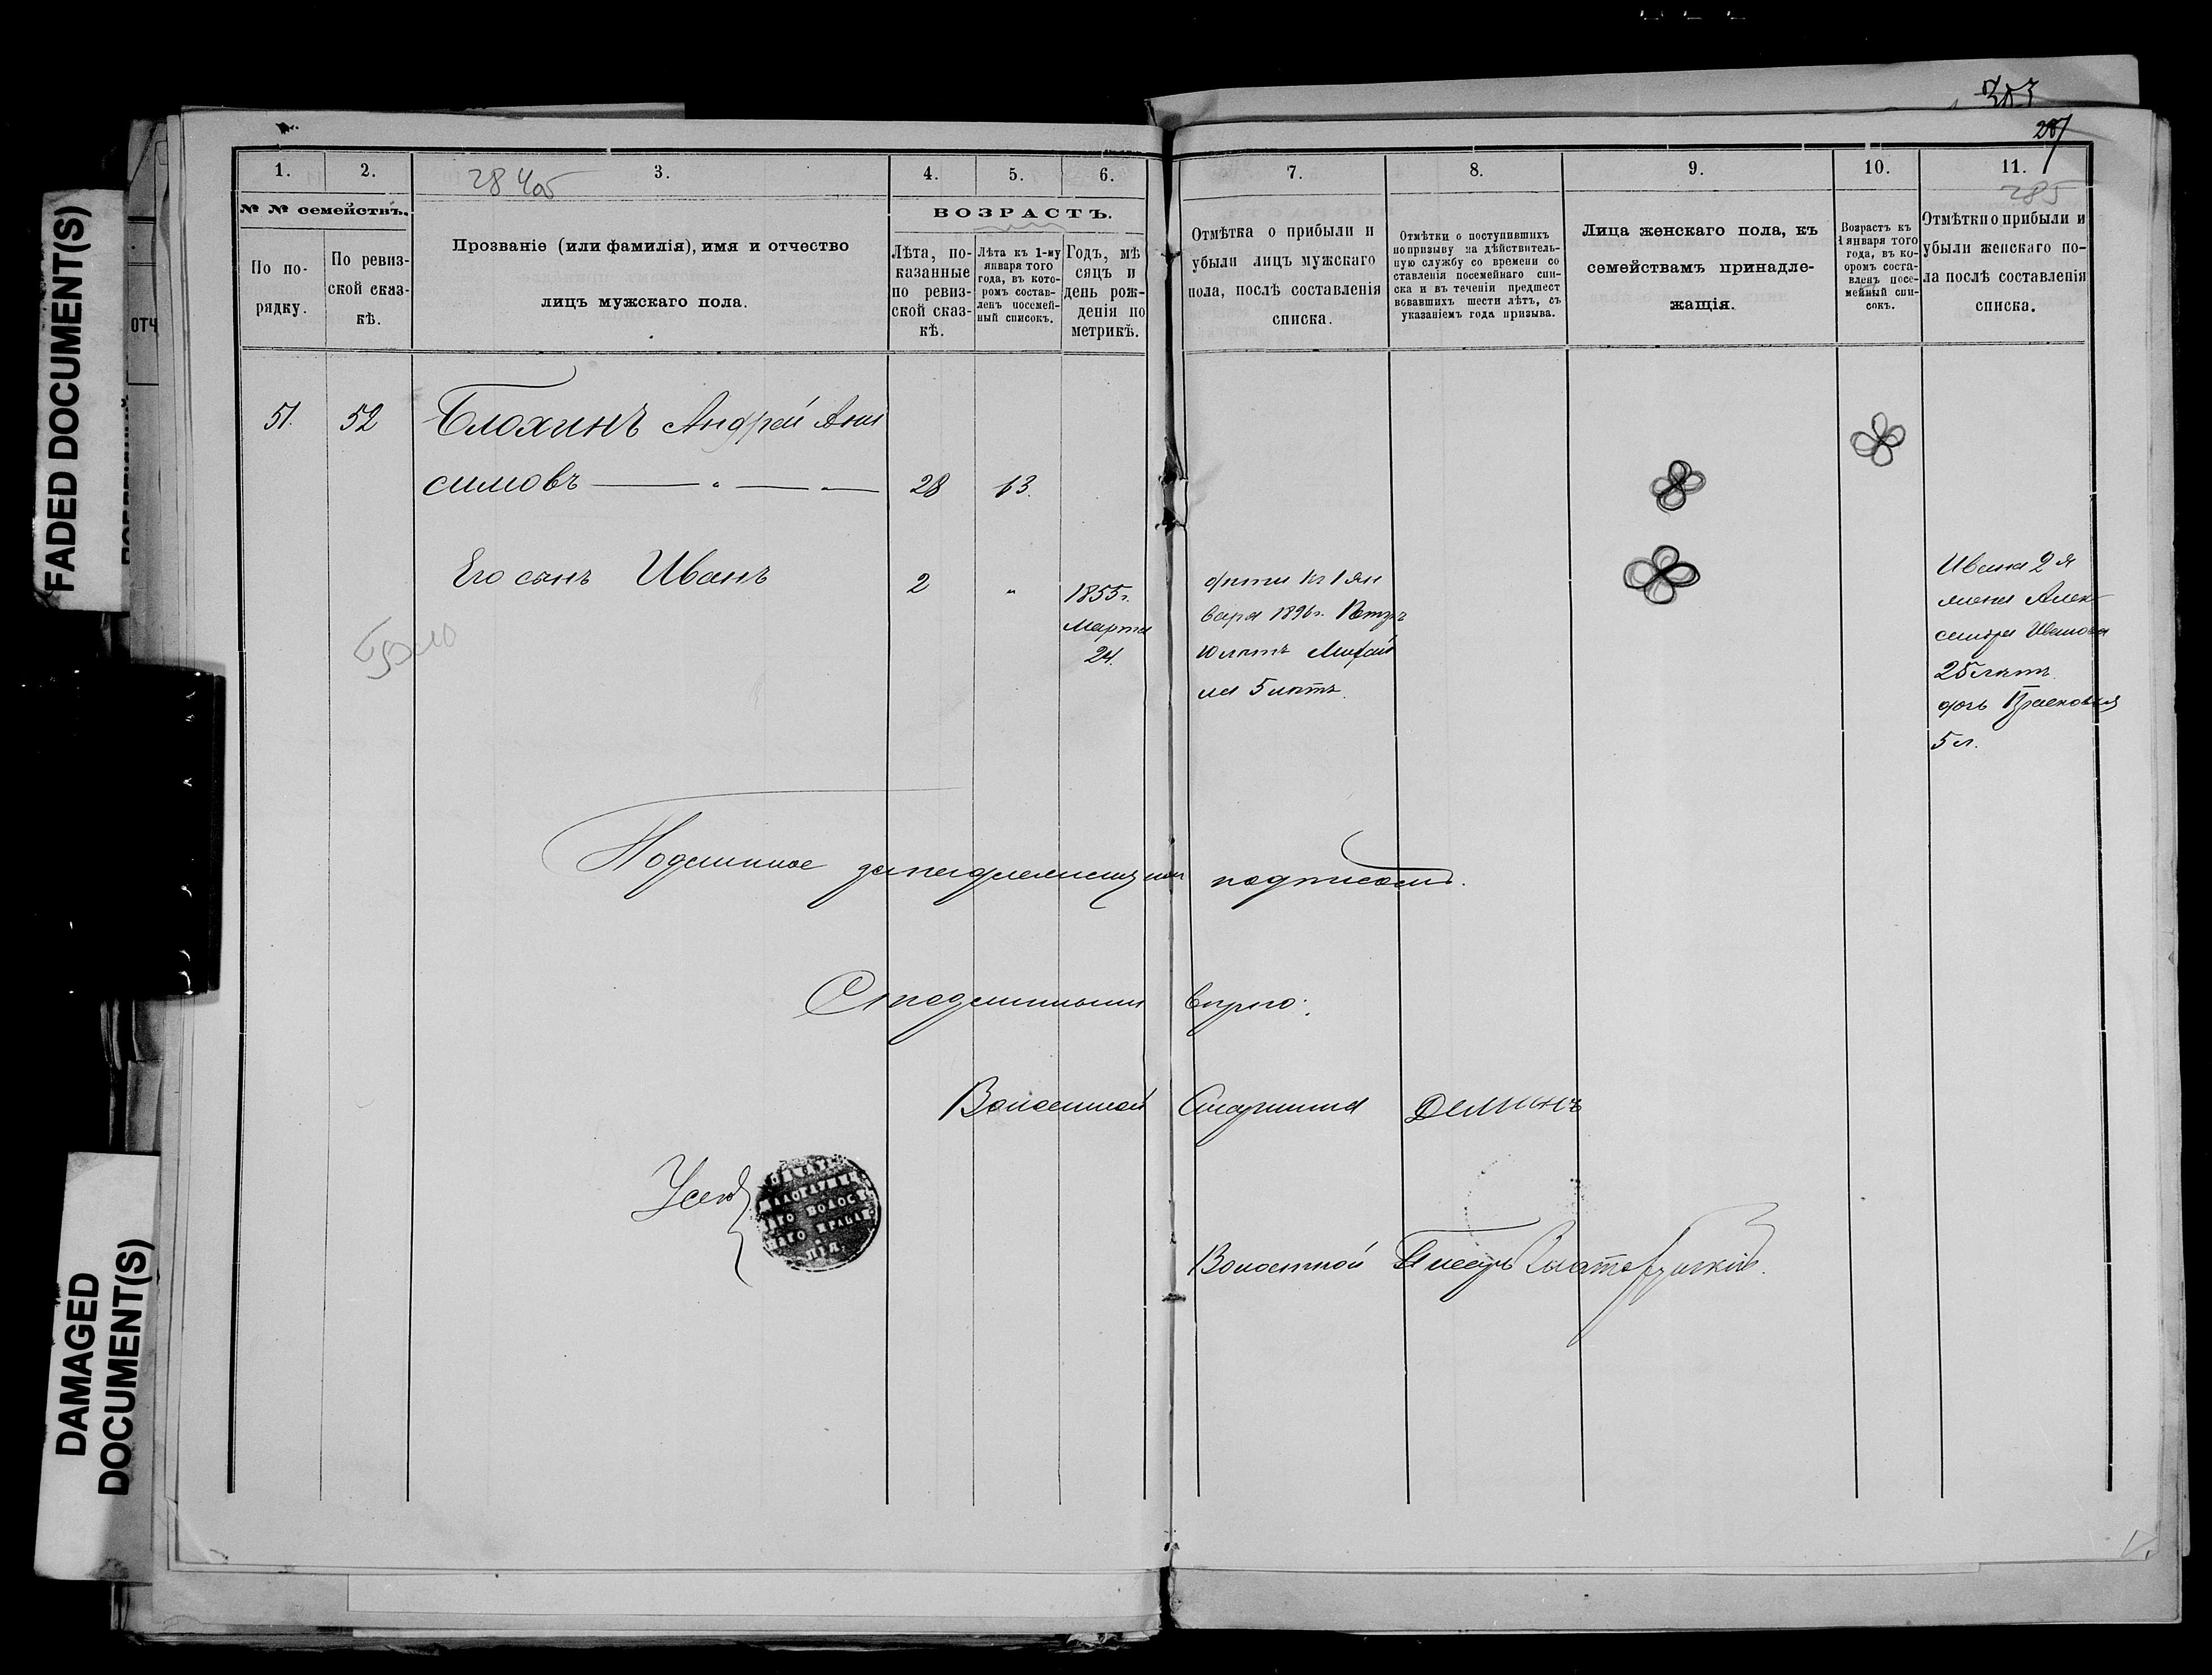 FADED DOCUMENT(S)
DAMAGED
DOCUMENT(S)
ОТЧ
281
285
1.
2.
3.
4.
5.
6.
7.
8.
9.
10.
11.
№ № семействъ.
По по-
рядку.
По ревиз-
ской сказ-
кѣ.
Прозваніе (или фамилія), имя и отчество
лицъ мужскаго пола.
ВОЗРАСТЪ.
Лѣта, по-
казанные
по ревиз-
ской сказ-
кѣ.
Лѣта къ 1-му
января того
года, въ кото-
ромъ состав-
ленъ посемей-
ный списокъ.
Годъ, мѣ
сяцъ и
день рож-
денія по
метрикѣ.
Отмѣтка о прибыли и
убыли лицъ мужскаго
пола, послѣ составленія
списка.
Отмѣтки о поступившихъ
по призыву на дѣйствитель-
ную службу со времени со
ставленія посемейнаго спи-
ска и въ теченіи предшест
вовавшихъ шести лѣтъ, съ
указаніемъ года призыва.
Лица женскаго пола, къ
семействамъ принадле-
жащія.
Возрастъ къ
1 января того
года, въ ко-
оромъ соста-
вленъ посе-
мейный спи-
сокъ.
Отмѣтки о прибыли и
убыли женскаго по-
ла послѣ составленія
списка.
51. 52 Блохинъ Андрей Ани
симовъ 28 13.
Его сынъ Иванъ 2 "
1855 г.
Марта
24.
дѣти къ 1 Ян
варя 1896 г. Петръ
10 лѣтъ Михаи
ла 5 лѣтъ.
Ивана 2 я
жена Алек
сандра Иванова
25 лѣтъ
дочь Прасковья
5 л.
Подлинное за надлежащимъ подписомъ.
Съ подлиннымъ вѣрно:
Волостной Старшина Деминъ
Волостной Писарь